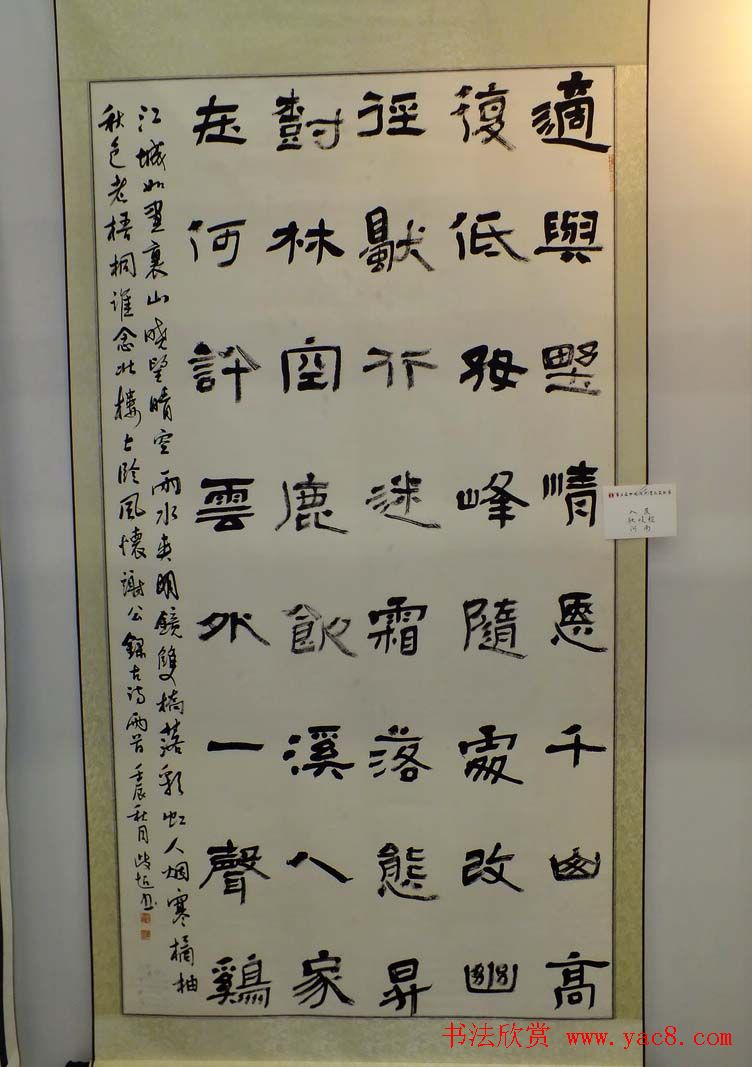 適與野情愜千山高
復低好峰隨處改幽
徑獨行迷霜落態昇
尌林空鹿飲溪人家
在何許雲外一聲鷄
江城如畫裏山曉望晴空兩水夾明鏡雙橋落彩虹人烟寒橘柚
秋色老梧桐誰念此樓上臨風懷謝公錄古詩兩首 壬辰秋月
入展
河南
书法欣赏 www.yac8.com